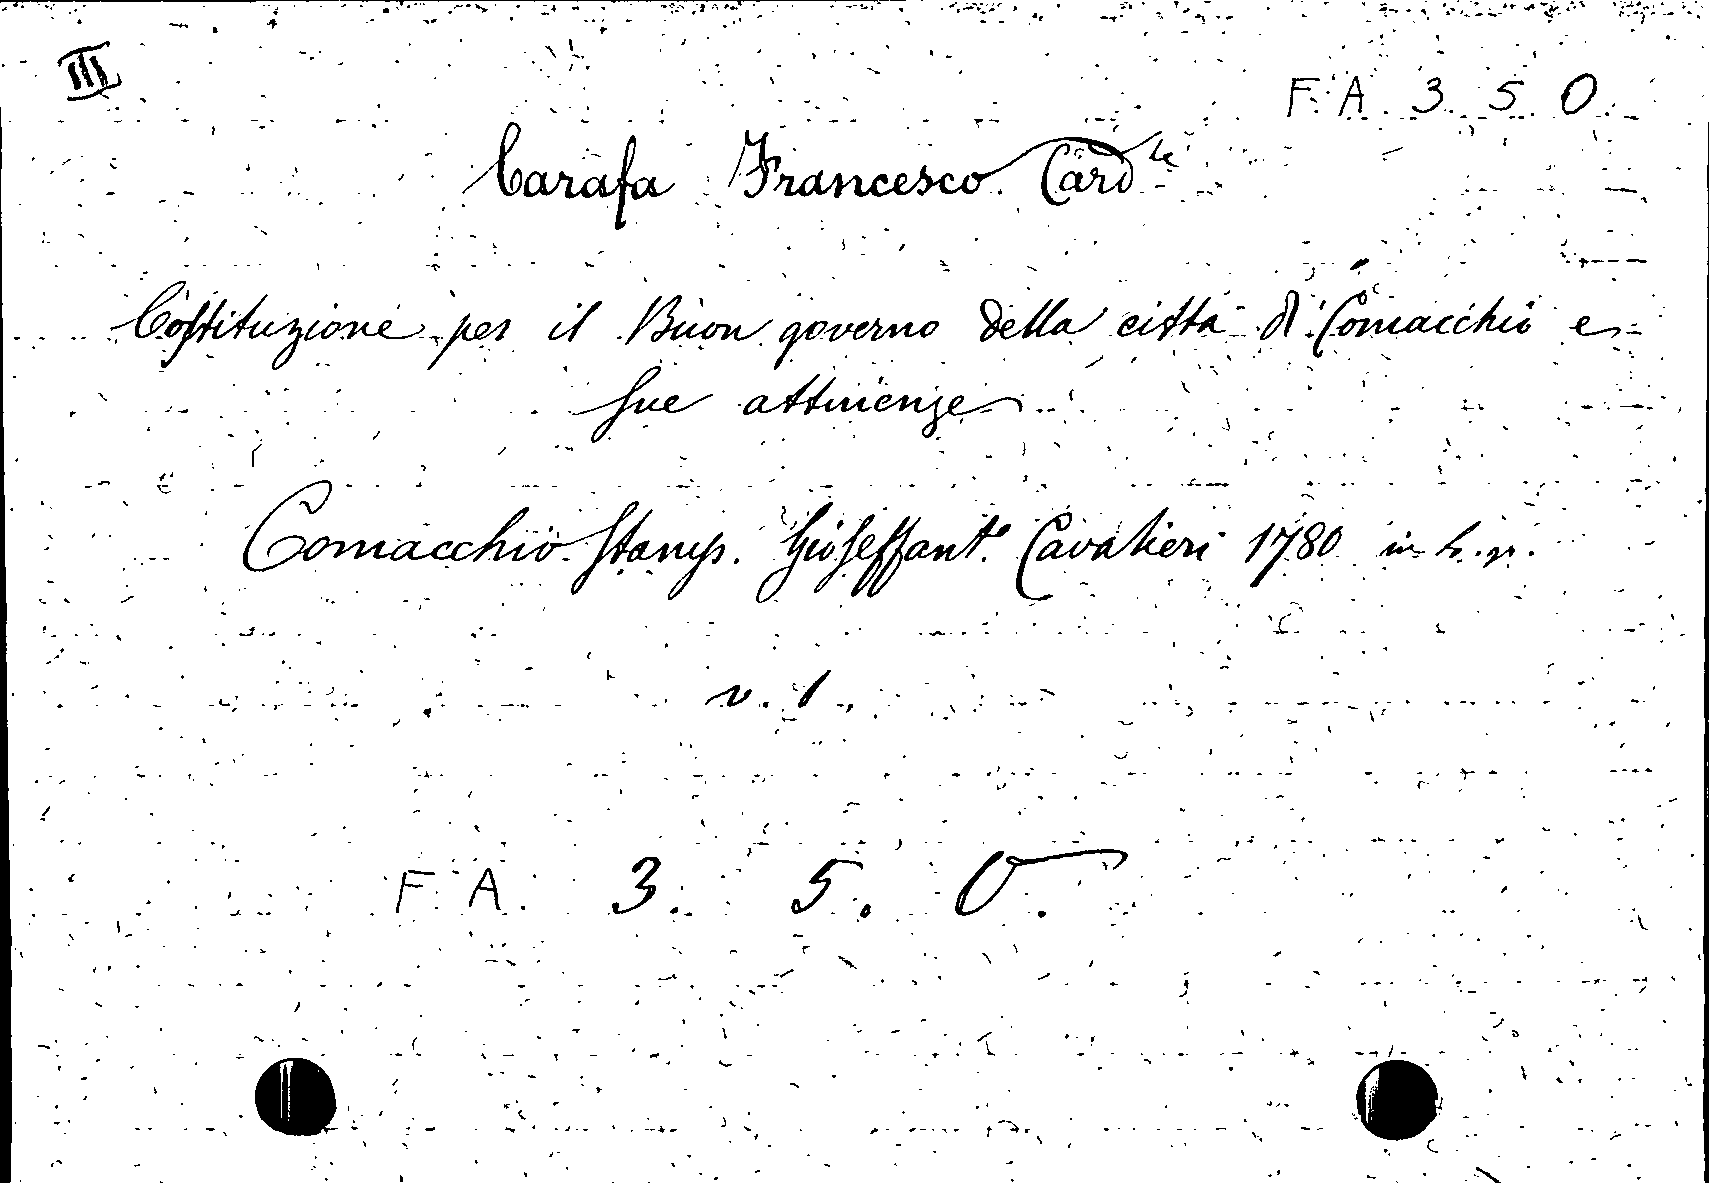 III
F. A. 3. 5. 0.
Carafa Francesco Card.le
Costituzione per il Buon governo della città di Comacchio e
sue attinenze
Comacchio Stamp. Gioseffant.o Cavalieri 1780 in
v. 1.
F. A. 3. 5. 0.